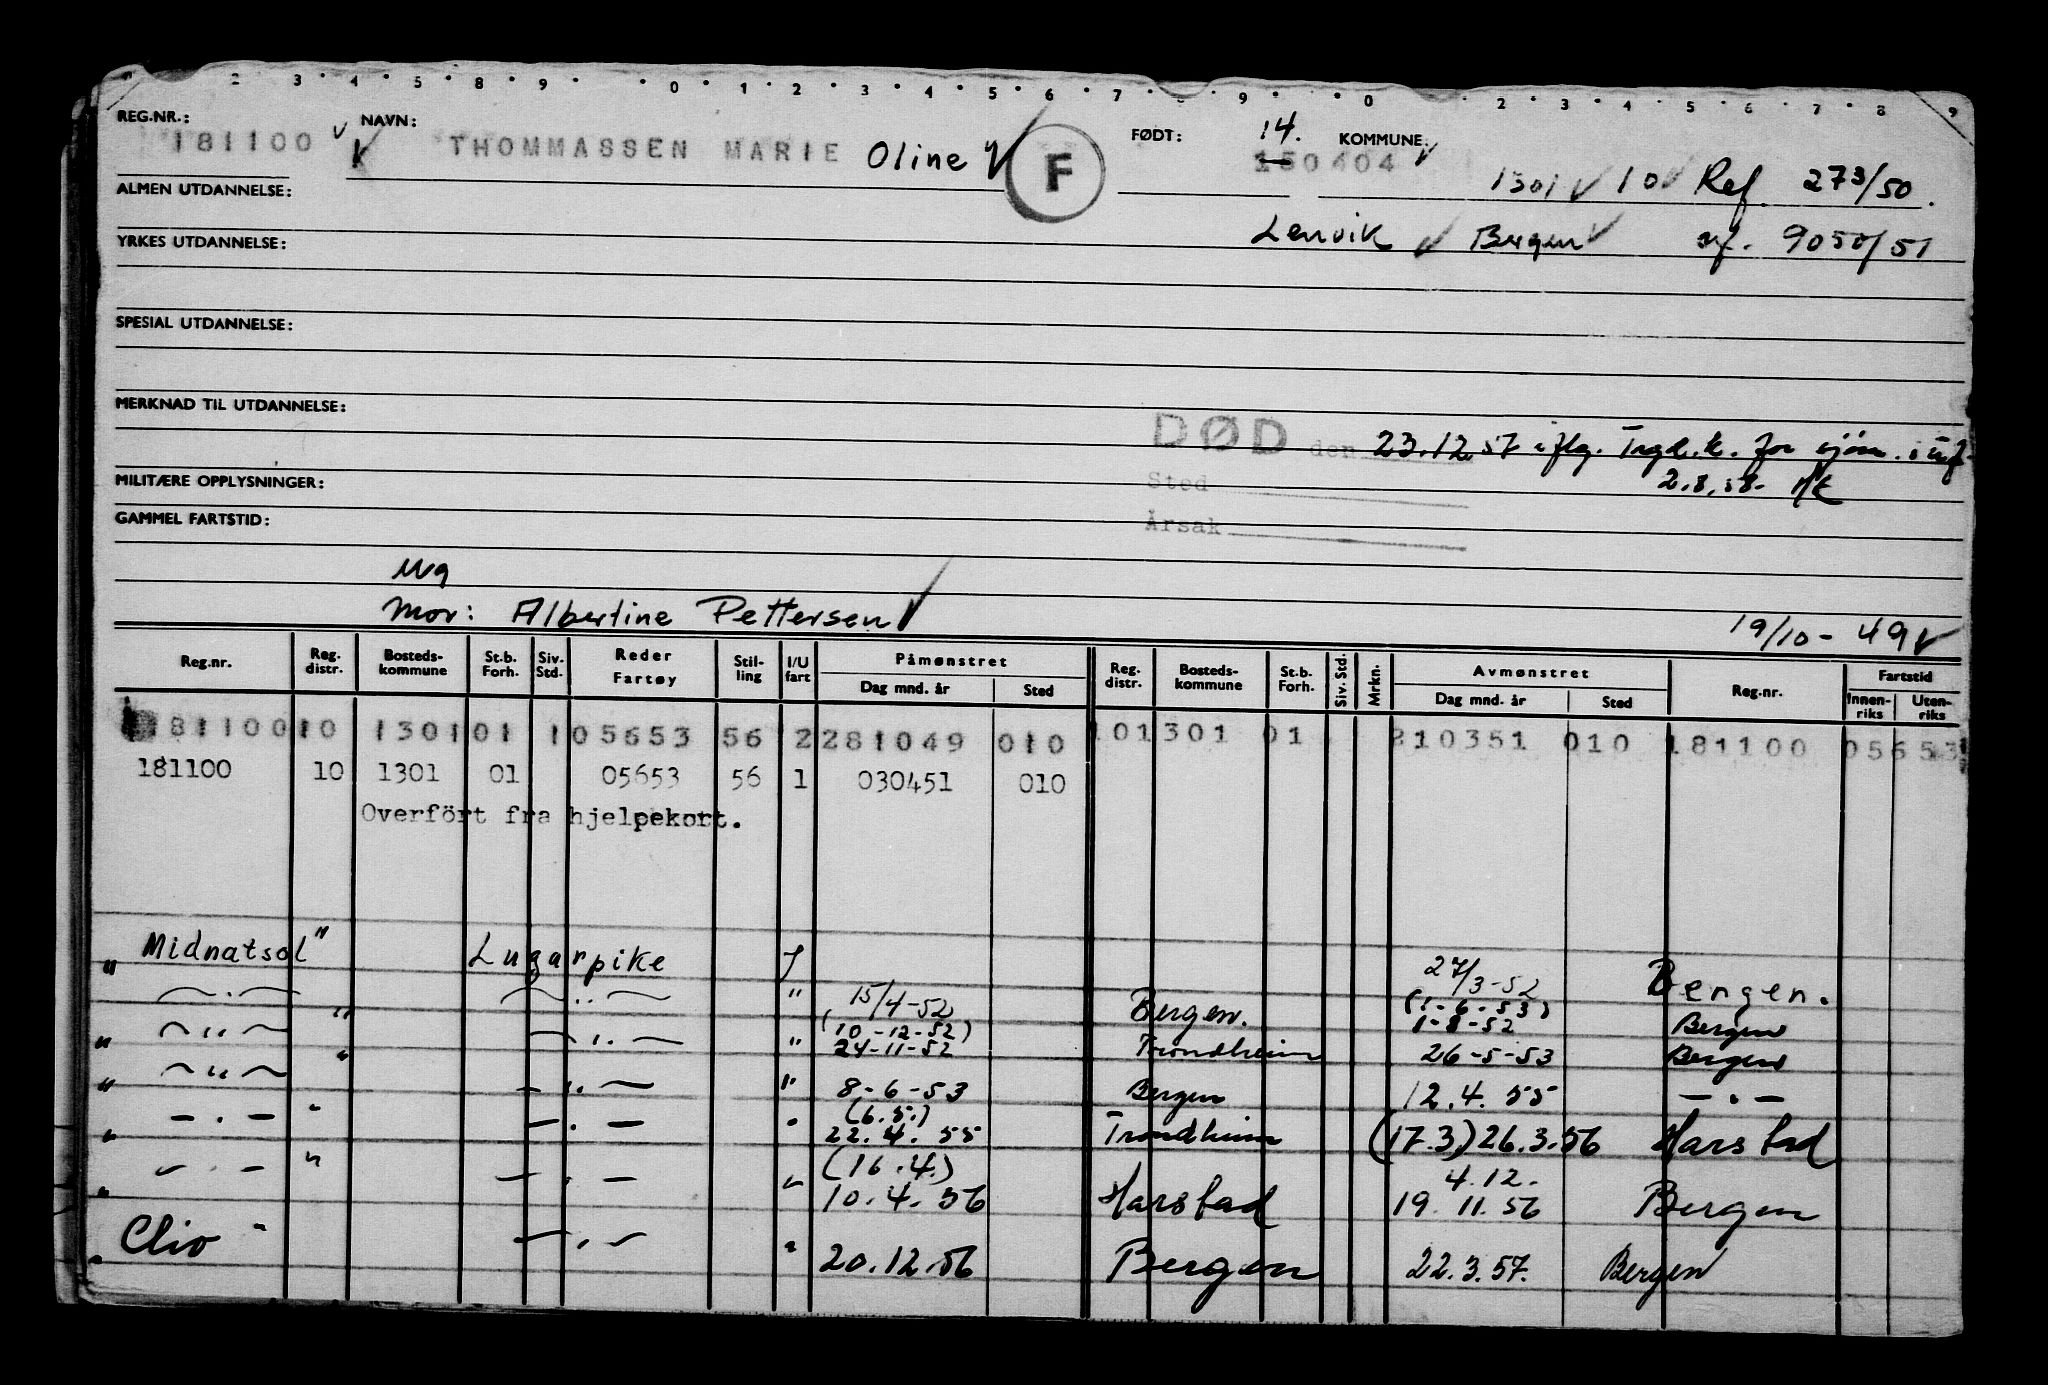 2 3 4 5 8 9 0 1 2 3 4 5 6 7 8 9 0 2 3 4 5 6 7 8 9
REG.NR.: 181100 NAVN: THOMMASSEN MARIE Oline F FØDT: 14. 150404 KOMMUNE: 1301 10 Ref. 273/50.
ALMEN UTDANNELSE:
Lenvik Bergen 9050/51
YRKES UTDANNELSE:
SPESIAL UTDANNELSE:
MERKNAD TIL UTDANNELSE:
DØD den 23.12.57 iflg. Trgd.k. for sjøm.
Sted 2.8.58.
MILITÆRE OPPLYSNINGER:
Årsak
GAMMEL FARTSTID:
Ug
Mor: Albertine Pettersen
19/10-49
Reg.nr. Reg. distr. Bosteds-kommune St.b. Forh. Siv. Std. Reder Fartøy Stil-ling I/U fart Påmønstret Dag mnd. år Sted Reg. distr. Bosteds-kommune St.b. Forh. Siv. Std. Mrkn. Avmønstret Dag mnd. år Sted Reg.nr. Fartstid Innen-riks Uten-riks
181100 10 1301 01 1 05653 56 2 281049 010 10 1301 01 210351 010 181100 05653
181100 10 1301 01 05653 56 1 030451 010
Overfört fra hjelpekort.
"Midnatsol" Lugarpike 27/3-52 Bergen.
" — . — " — " — " 15/4-52 Bergen. (1-6-53) 1-8-52 Bergen
" — " — " — " — " (10-12-52) 24-11-52 Trondheim 26-5-53 Bergen
" — " — " — " — " 8-6-53 Bergen 12.4.55 — " —
" — . — " — . — " (6.5.) 22.4.55 Trondheim (17.3) 26.3.56 Harstad
" — . — " — . — " (16.4.) 10.4.56 Harstad 4.12. 19.11.56 Bergen
"Clio" — " — " 20.12.56 Bergen 22.3.57. Bergen